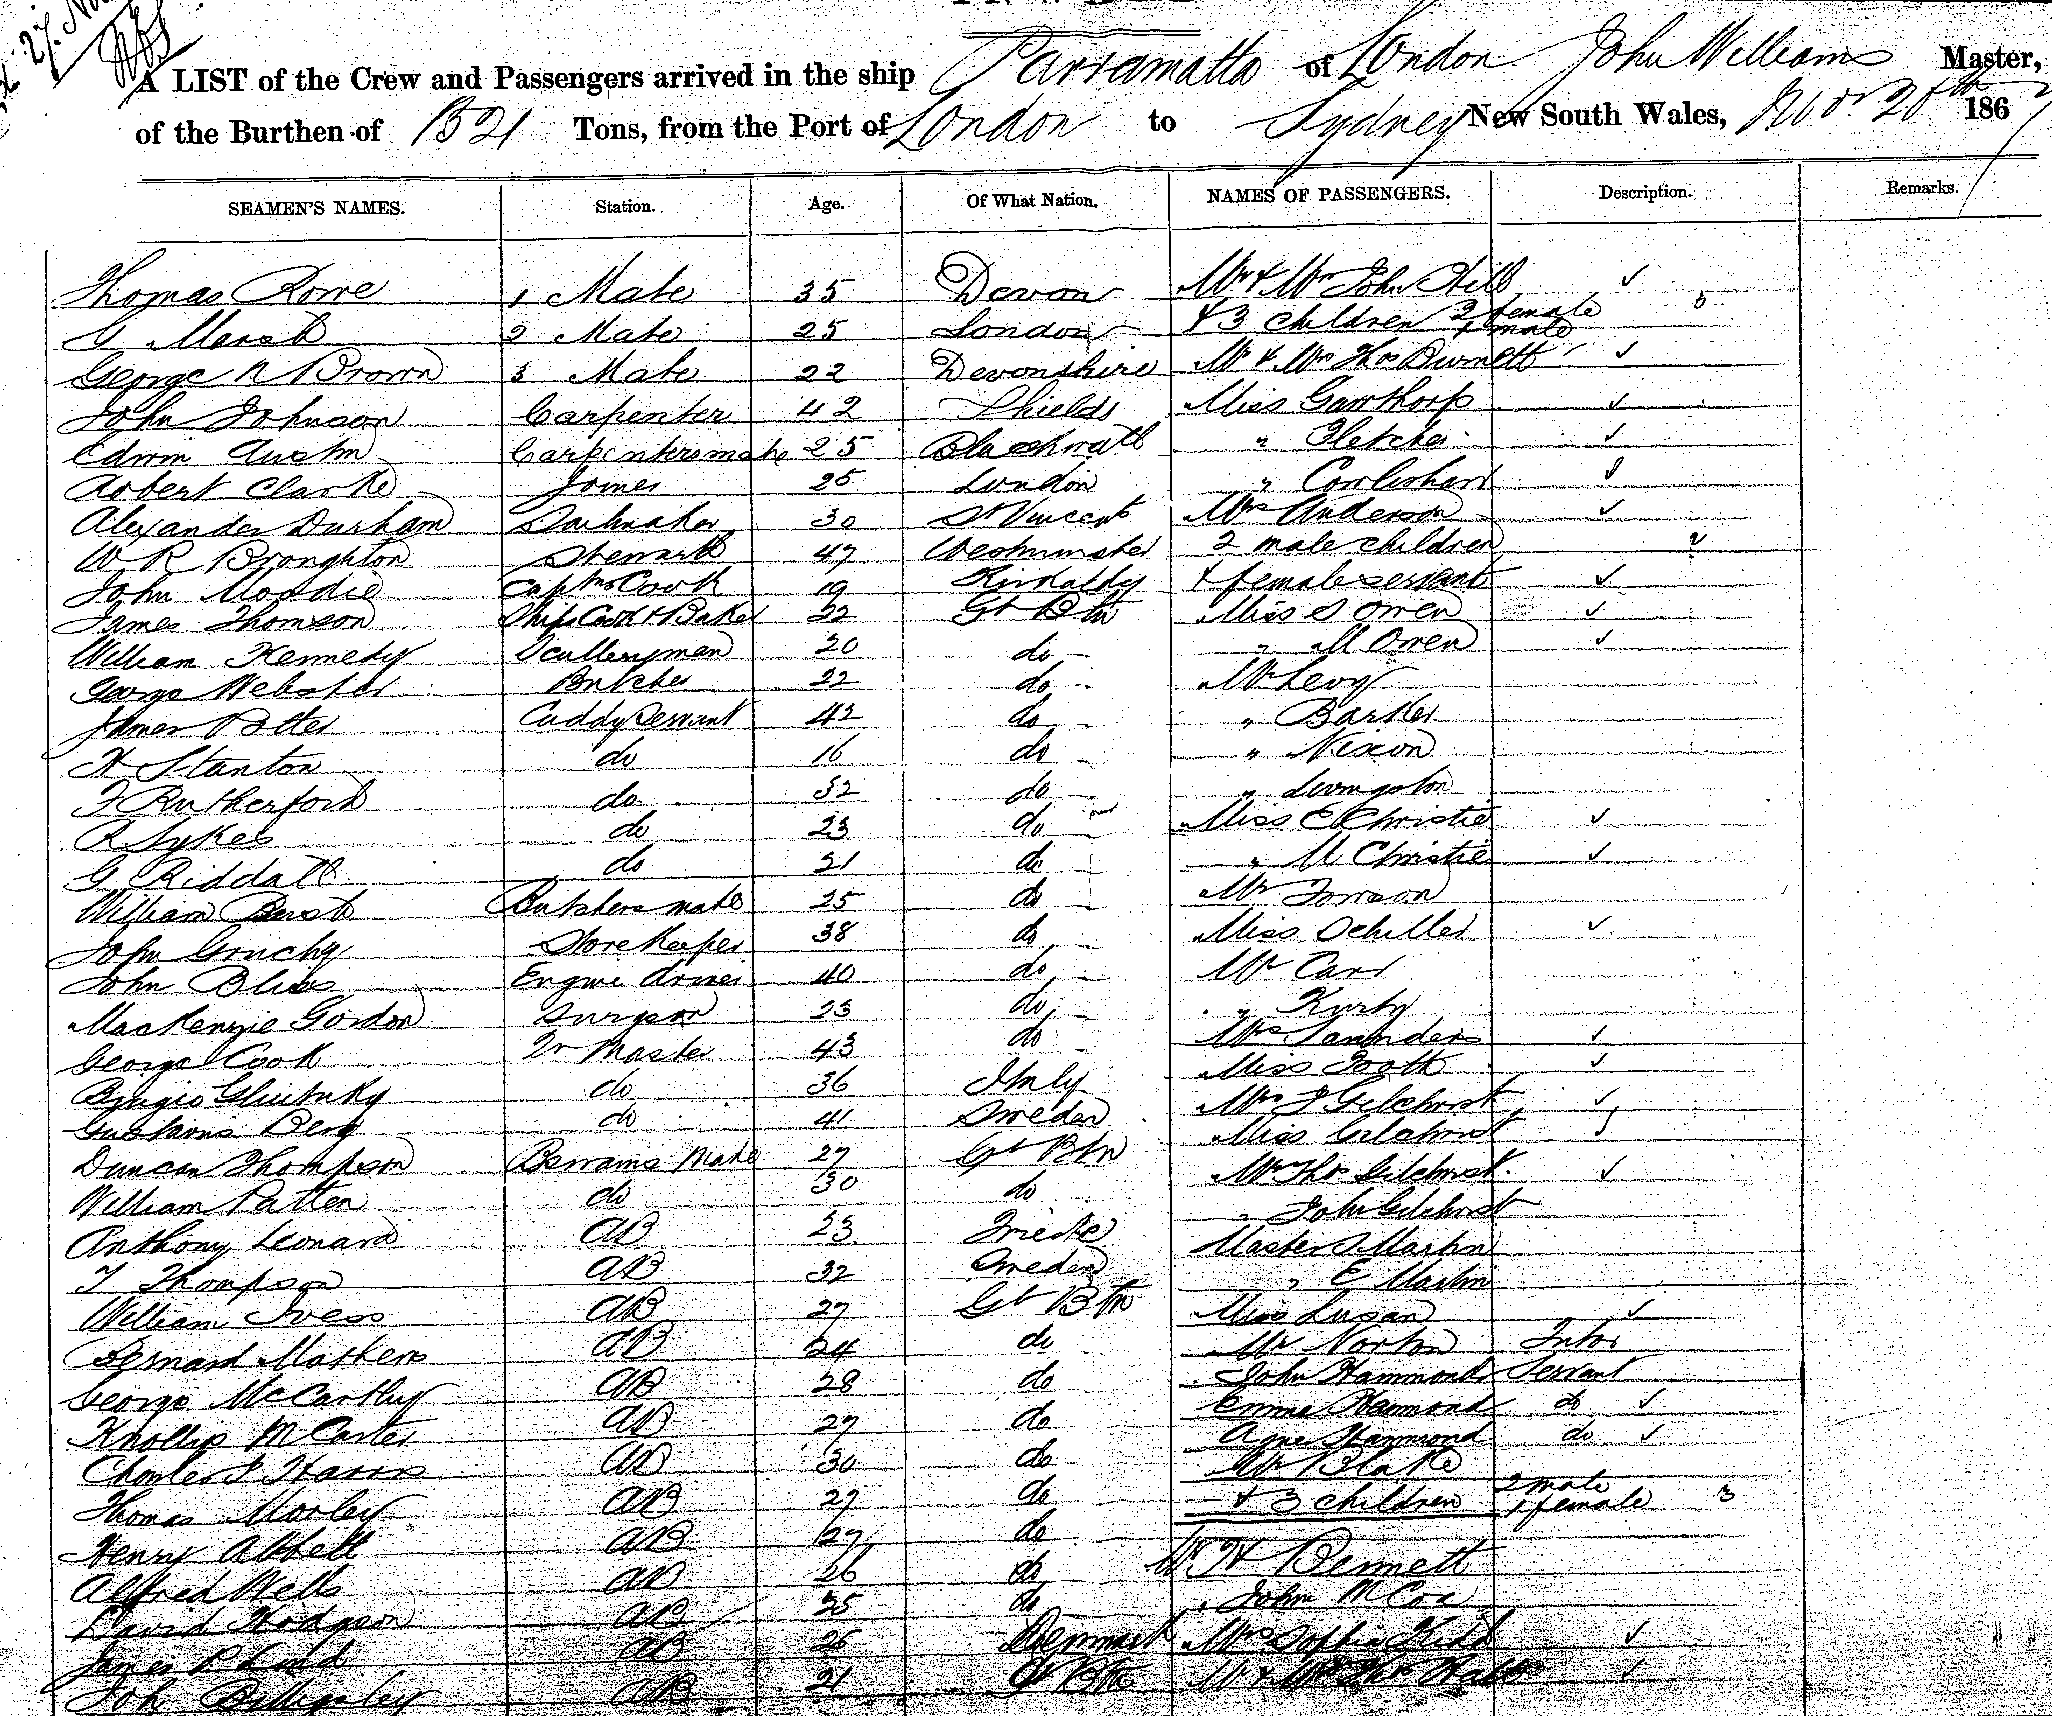 27. Nov
A LIST of the Crew and Passengers arrived in the ship Parramatta of London John Williams Master,
of the Burthen of 1521 Tons, from the Port of London to Sydney New South Wales, Novr 20th 186
SEAMEN'S NAMES. Station. Age. Of What Nation. NAMES OF PASSENGERS. Description. Remarks.
Thomas Rowe 1 Mate 35 Devon Mr & Mrs John Hill
G Marsh 2 Mate 25 London & 3 children 2 female 1 male
George N Brown 3 Mate 22 Devonshire Mr & Mrs Thos Burnett
John Johnson Carpenter 42 Shields Miss Gawthorp
Edwin Austin Carpenters mate 25 Blackwall " Fletcher
Robert Clarke Joiner 25 London "
Alexander Durham Sailmaker 30 St Vincent Mrs Anderson
W R Broughton Steward 47 Westminster 2 male children 2
John Moodie Captns Cook 19 Kirkaldy & female servant
James Thomson Ships Cook & Baker 22 Gt Btn Miss S Owen
William Kennedy Sculleryman 20 do " M Owen
George Webster Butcher 22 do Mr Levy
James Potter Cuddy Servant 42 do " Barker
H Stanton do 16 do " Nixon
F Rutherford do 32 do " Livingston
R Sykes do 23 do Miss E Christie
G Riddall do 21 do " M Christie
William Butchers mate 25 do Mr
John Gruchy Storekeeper 38 do Miss Schiller
John Bliss Engine driver 40 do Mr Carr
MacKenzie Gordon Surgeon 23 do " Kirby
George Cook Qr Master 43 do Mrs Saunders
do 36 Italy Miss Tooth
Berg do 41 Sweden Mrs J Gilchrist
Miss Gilchrist
Duncan Thompson Boswains Mate 27 Gt Btn Mr Thos Gilchrist
William Patten do 30 do " John Gilchrist
Anthony Leonard AB 23 Trieste Master S Martin
T Thompson AB 32 Sweden " E Martin
William Ivess AB 27 Gt Btn Miss Susan
Bernard Mathers AB 24 do Mr Norton Tutor
George McCarthy AB 28 do John Hammond Servant
M Carter AB 27 do Emma Hammond do
Charles J Harris AB 30 do Hammond do
Thomas Morley AB 27 do Mr Blake
& 3 children 2 male 1 female 3
Henry Abbett AB 27 do
Alfred Wells AB 26 do Mr H Bennett
David Hodgson AB 25 do " John McCoe
James R Ludd AB 26 Denmark Mrs Sophia Kidd
Joh Billingsley AB 21 Gt Btn Mr & Mrs Thos